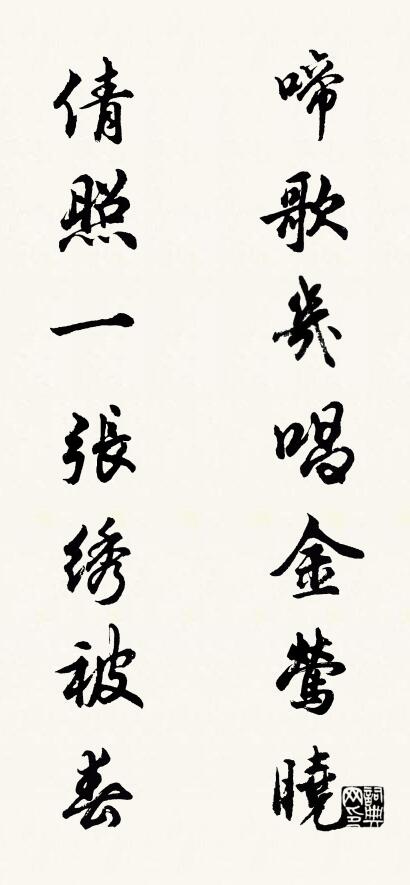 啼歌幾唱金鶯曉
倩照一張绣被春
詞典網